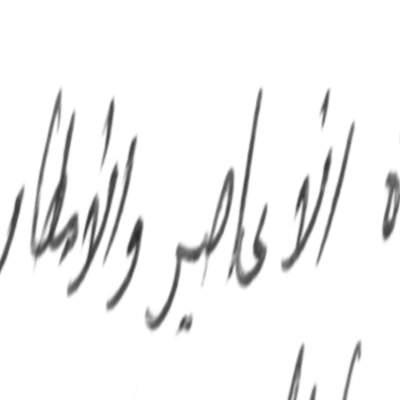 الأعاصير والأمطار